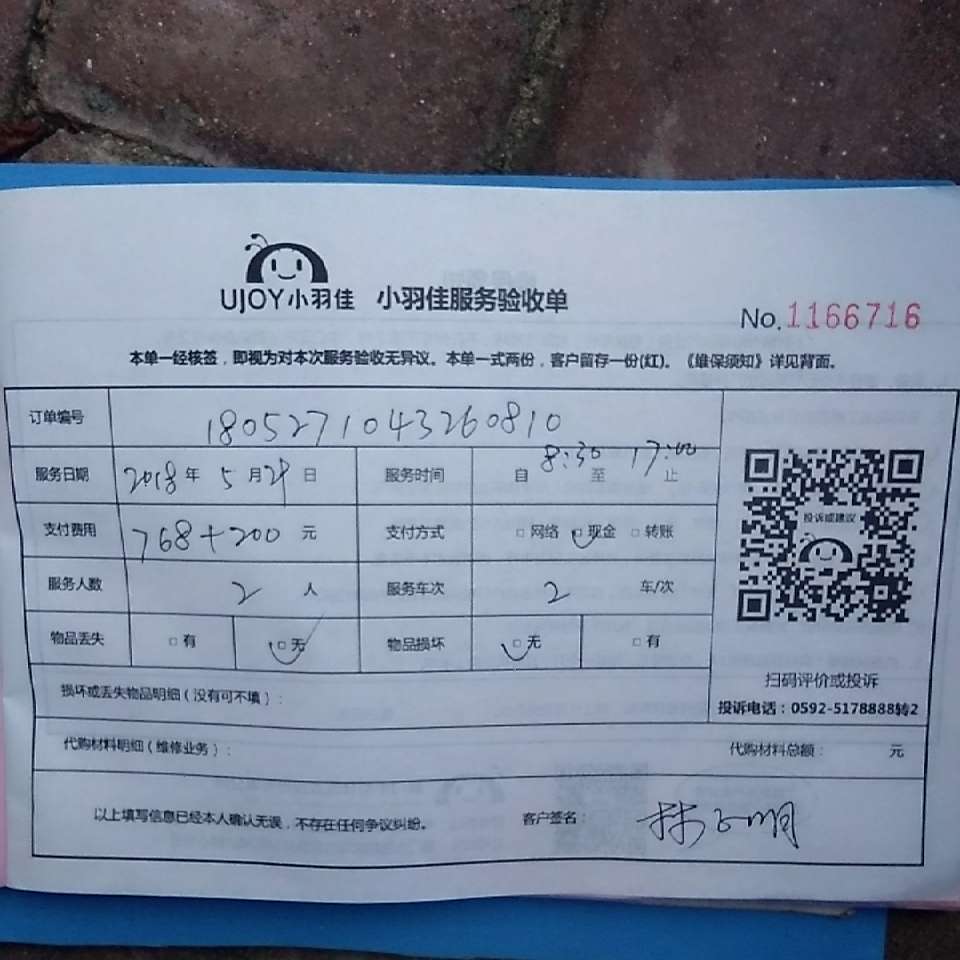 UJOY小羽佳 小羽佳服务验收单
No.1166716
本单一经核签，即视为对本次服务验收无异议。本单一式两份，客户留存一份(红)。《维保须知》详见背面。
订单编号 1805271043260810
服务日期 2018年 5月29日 服务时间 自 8:30 至 17:00 止
支付费用 768+200 元 支付方式 □网络 □现金 □转账
服务人数 2 人 服务车次 2 车/次
物品丢失 □有 □无 物品损坏 □无 □有
损坏或丢失物品明细（没有可不填）：
投诉或建议
扫码评价或投诉
投诉电话：0592-5178888转2
代购材料明细（维修业务）： 代购材料总额： 元
以上填写信息已经本人确认无误，不存在任何争议纠纷。 客户签名：